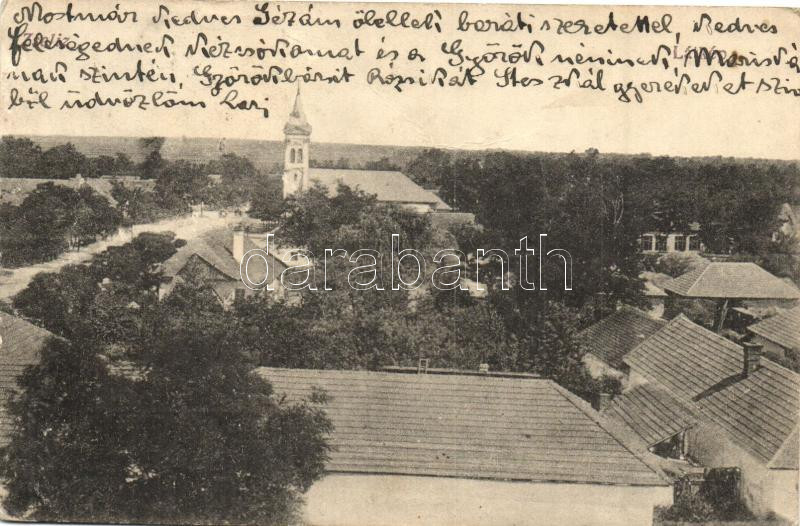 Mostmár Kedves Gézám öbelleli baráti szeretettel, Kedves
feleségednek Kézcsókomat és a Györök néninek, Mariská
nak szintén, Györökbácsit Rózsikát
gyerekeket szin
ből üdvözlöm Laci
darabanth